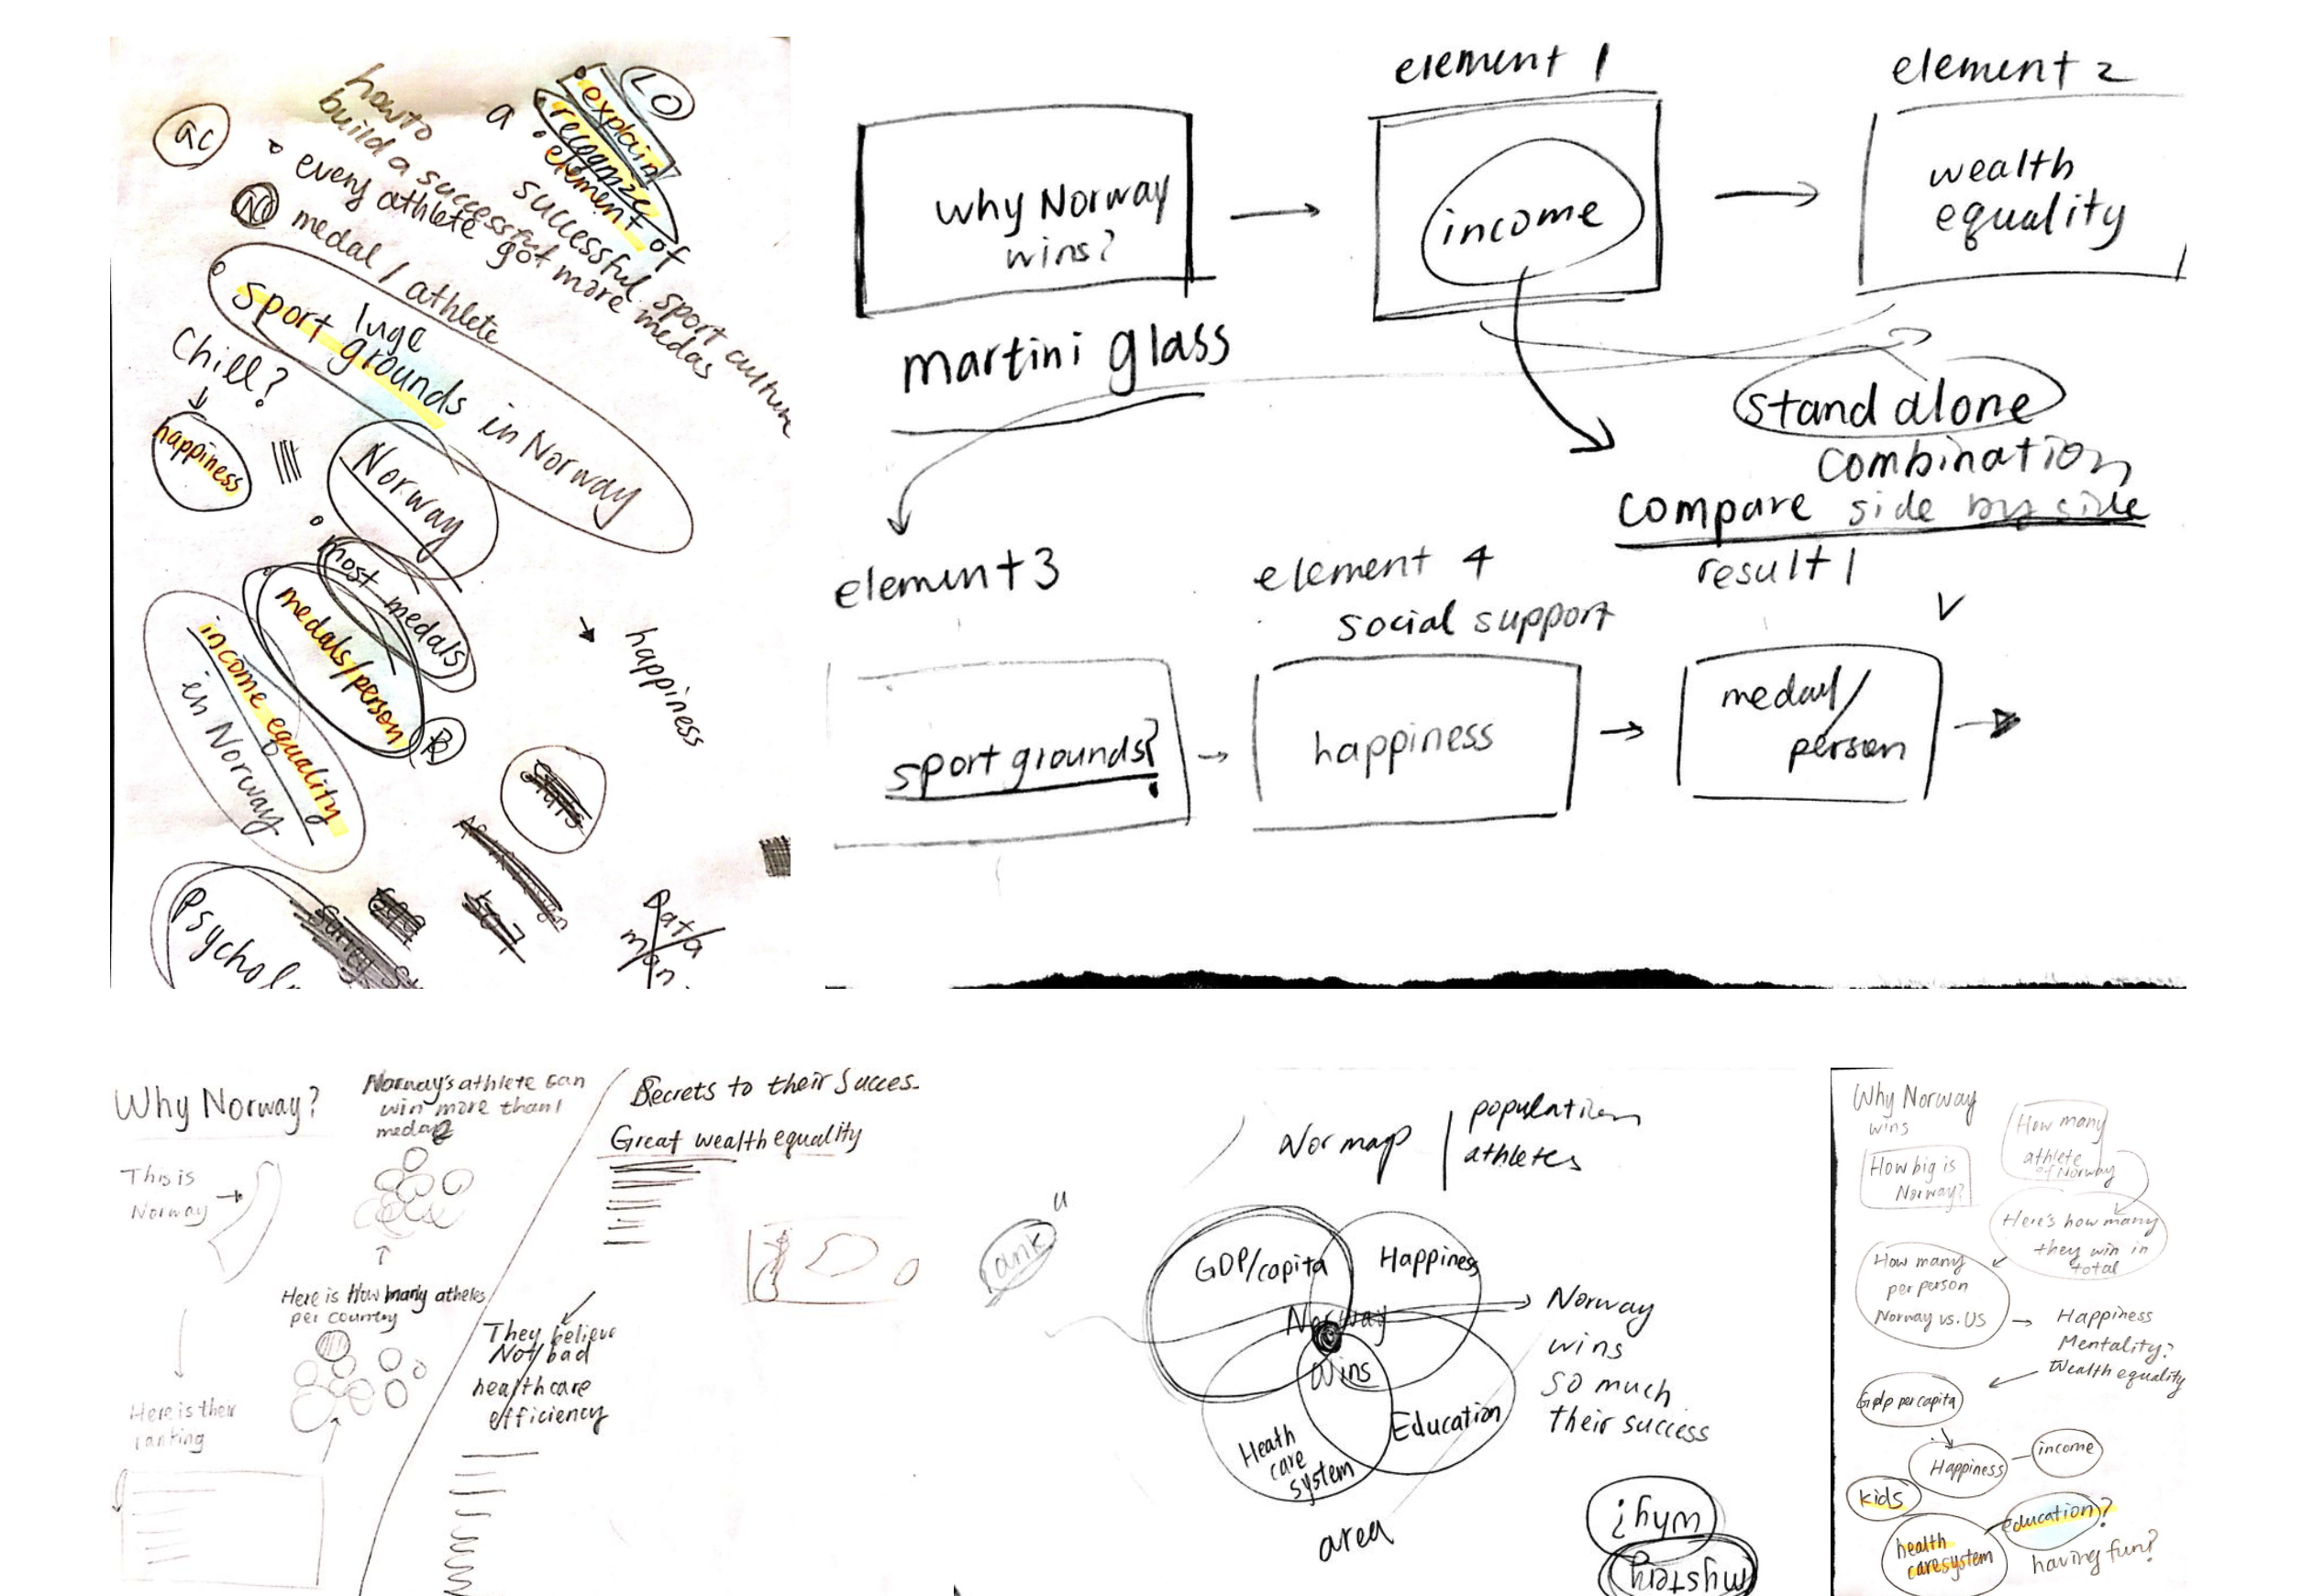 LO
explain
recognize
a element of
successful sport culture
how to
build a successful
ac
every athlete got more medas
medal / athlete
luge
sport grounds in Norway
Chill?
happiness
Norway
most medals
medals/person
B
income equality
in Norway
happiness
Data
man
Psychol
why Norway
wins?
martini glass
element 1
income
element 2
wealth
equality
stand alone
combination
compare side by side
result 1
element 3
sport grounds?
element 4
social support
happiness
medal/
person
Why Norway?
This is
Norway
Here is their
ranking
Norway's athlete can
win more than 1
medal
Here is How many atheles
per country
Secrets to their Succes
Great wealth equality
They believe
Not bad
healthcare
efficiency
Nor map
population
athletes
rank
GDP/capita
Happiness
Norway
wins
Heath
care
system
Education
Norway
wins
so much
their success
area
why?
mystery
Why Norway
wins
How many
athlete
of Norway
How big is
Norway?
Here's how many
they win in
total
How many
per person
Norway vs. US
Happiness
Mentality?
Wealth equality
Gdp per capita
Happiness
income
kids
education?
health
care system
having fun?